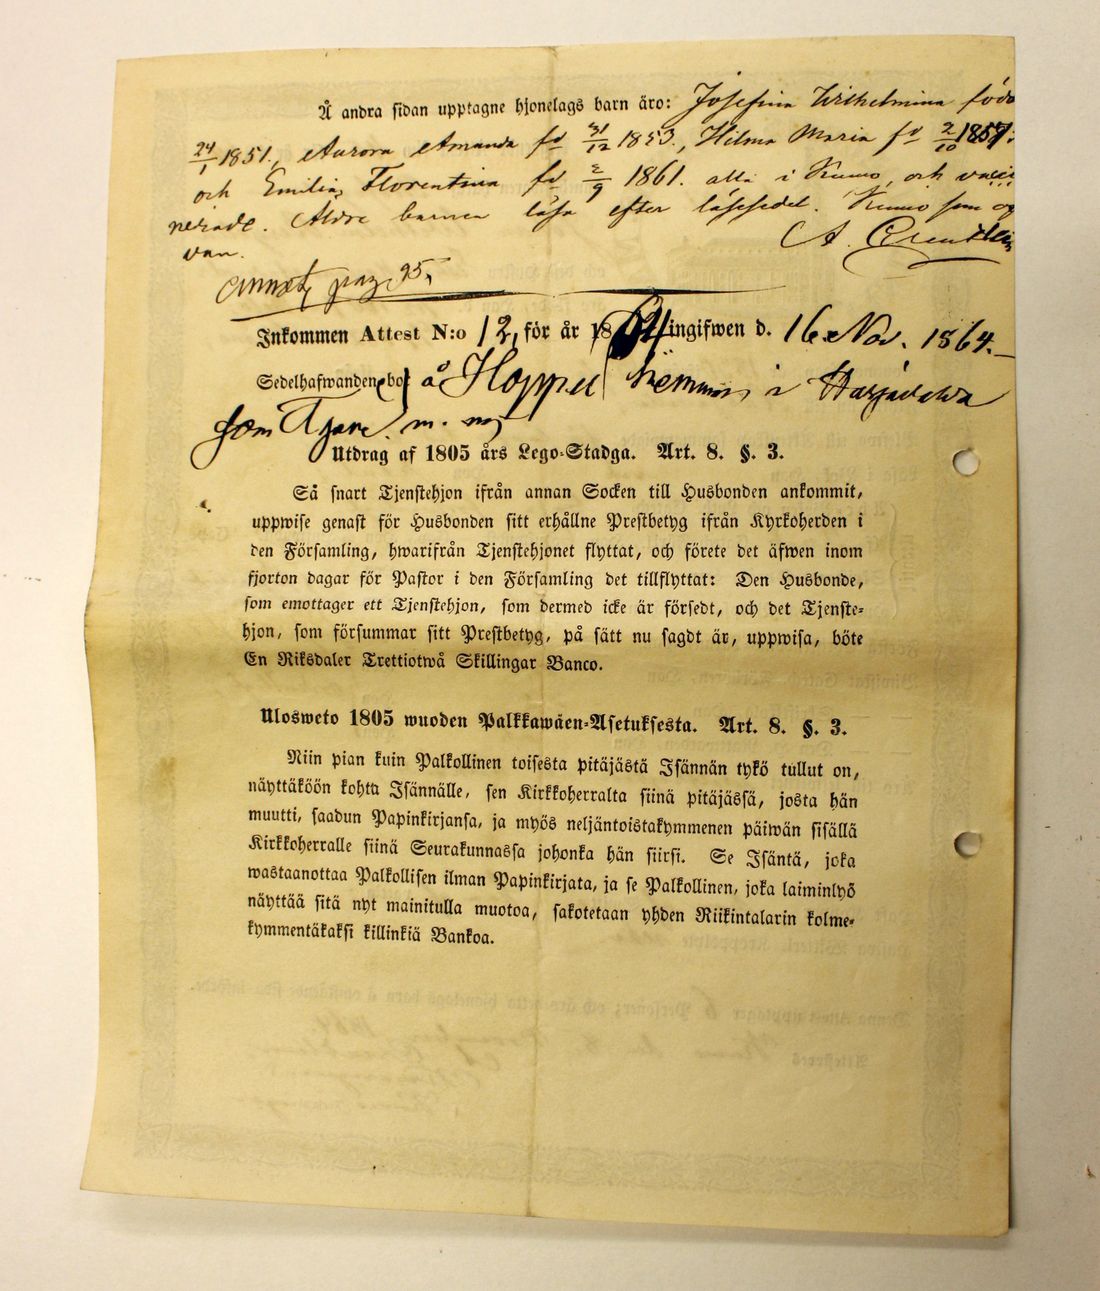 Å andra sidan upptagne hjonelags barn äro: Josefina Wilhelmina född
24/1 1851., Aurora Amanda fd 31/12 1853., Hilma Maria fd 2/10 1857.
och Emilia Florentina fd 2/9 1861. alla i Kumo, och vacci
nerade. Äldre barnen läsa efter läsesedel. Kumo som of
van. A.
Annot. pag. 95.
Inkommen Attest N:o 12, för år 1864 ingifwen d. 16 Nov. 1864.
Sedelhafwanden bo å Hemman i
som m.
Utdrag af 1805 års Lego-Stadga. Art. 8. §. 3.
Så snart Tjenstehjon ifrån annan Socken till Husbonden ankommit,
uppwise genast för Husbonden sitt erhållne Prestbetyg ifrån Kyrkoherden i
den Församling, hwarifrån Tjenstehjonet flyttat, och förete det äfwen inom
fjorton dagar för Pastor i den Församling det tillflyttat: Den Husbonde,
som emottager ett Tjenstehjon, som dermed icke är försedt, och det Tjenste-
hjon, som försummar sitt Prestbetyg, på sätt nu sagdt är, uppwisa, böte
En Riksdaler Trettiotwå Skillingar Banco.
Ulosweto 1805 wuoden Palkkawäen-Asetuksesta. Art. 8. §. 3.
Niin pian kuin Palkollinen toisesta pitäjästä Isännän tykö tullut on,
näyttäköön kohta Isännälle, sen Kirkkoherralta siinä pitäjässä, josta hän
muutti, saadun Papinkirjansa, ja myös neljäntoistakymmenen päiwän sisällä
Kirkkoherralle siinä Seurakunnassa johonka hän siirsi. Se Isäntä, joka
wastaanottaa Palkollisen ilman Papinkirjata, ja se Palkollinen, joka laiminlyö
näyttää sitä nyt mainitulla muotoa, sakotetaan yhden Riikintalarin kolme-
kymmentäkaksi killinkiä Bankoa.